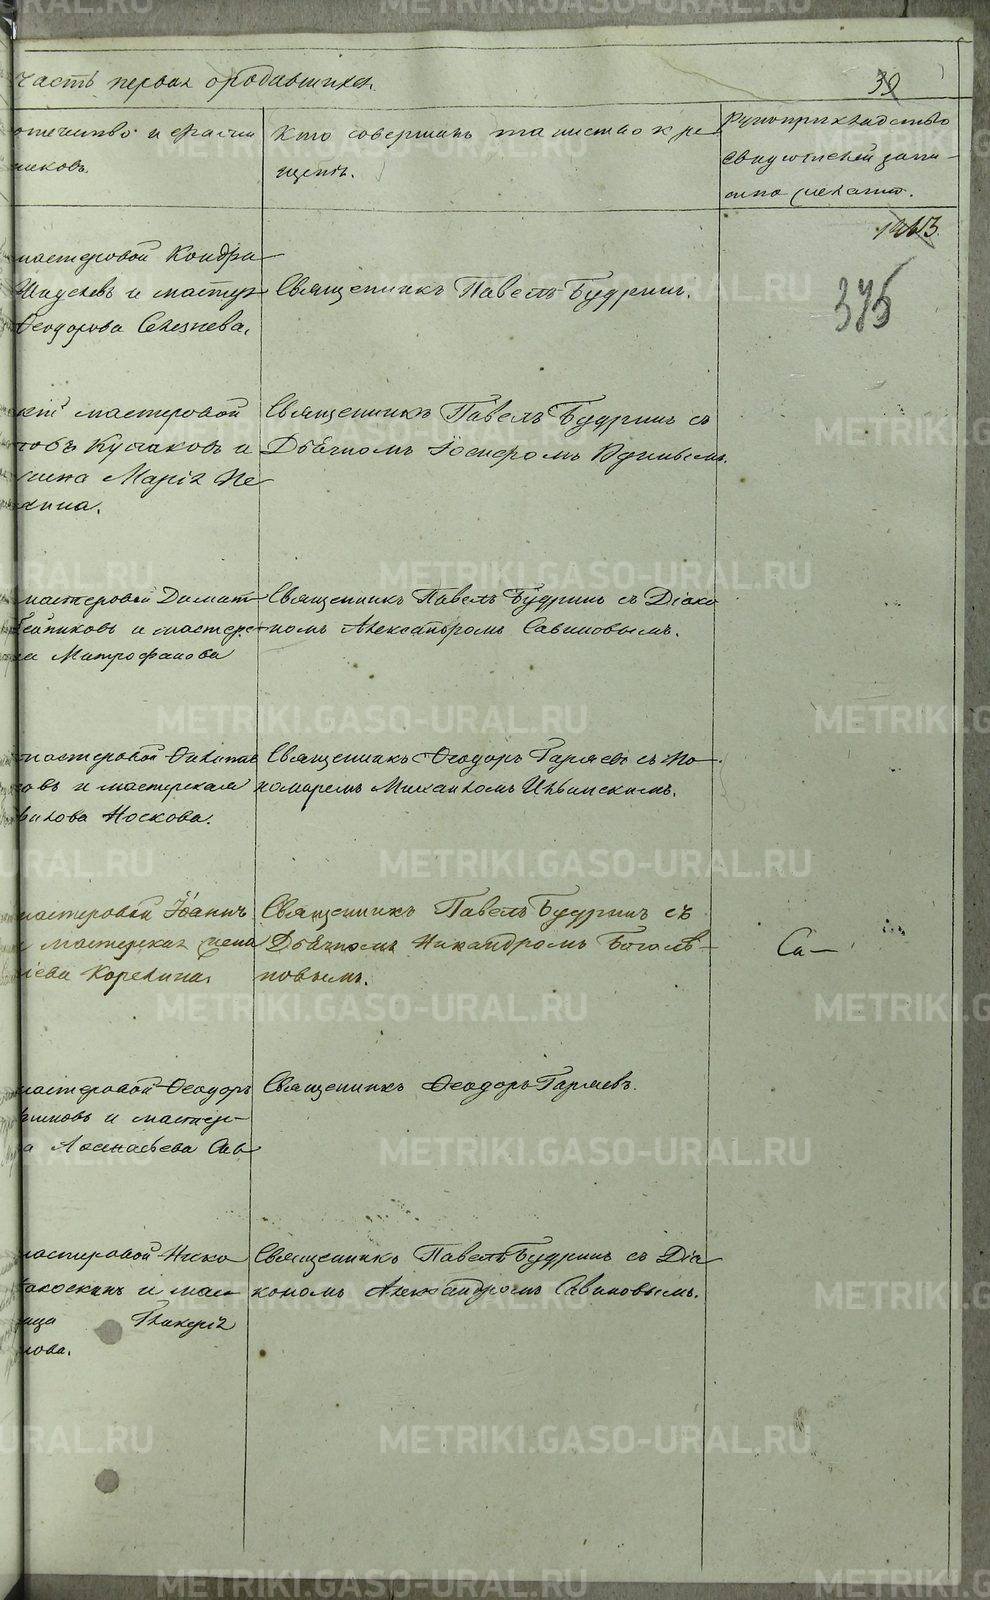 часть первая о родившихся.
39
отечество и фамилія
никовъ.
Кто совершалъ таинство кре-
щенія.
Рукоприкладство
свидѣтелей запи-
1213
375
мастеровой Кондра
и мастер-
Ѳеодорова Селезнева.
Священникъ Павелъ Будринъ.
мастеровой
Кусаковъ и
жена Марія
Священникъ Павелъ Будринъ съ
Дьячкомъ Іосифомъ
мастеровой Домент
и мастерс-
ва Митрофанова
Священникъ Павелъ Будринъ съ Діако
номъ Александромъ Савиновымъ.
мастеровой
овъ и мастерская
Носкова.
Священникъ Ѳеодоръ Гаряевъ съ По-
номаремъ Михаиломъ Ильинскимъ.
мастеровой Іоаннъ
мастерская жена
Корелина.
Священникъ Павелъ Будринъ съ
Дьячкомъ Никандромъ Боголѣ-
повымъ.
Са—
мастеровой Ѳеодоръ
и мастер-
Аѳанасьева Сав
Священникъ Ѳеодоръ Гаряевъ.
мастеровой Нико
и мас-
ница Гликерія
нова.
Священникъ Павелъ Будринъ съ Діа
кономъ Александромъ Савиновымъ.
METRIKI.GASO-URAL.RU